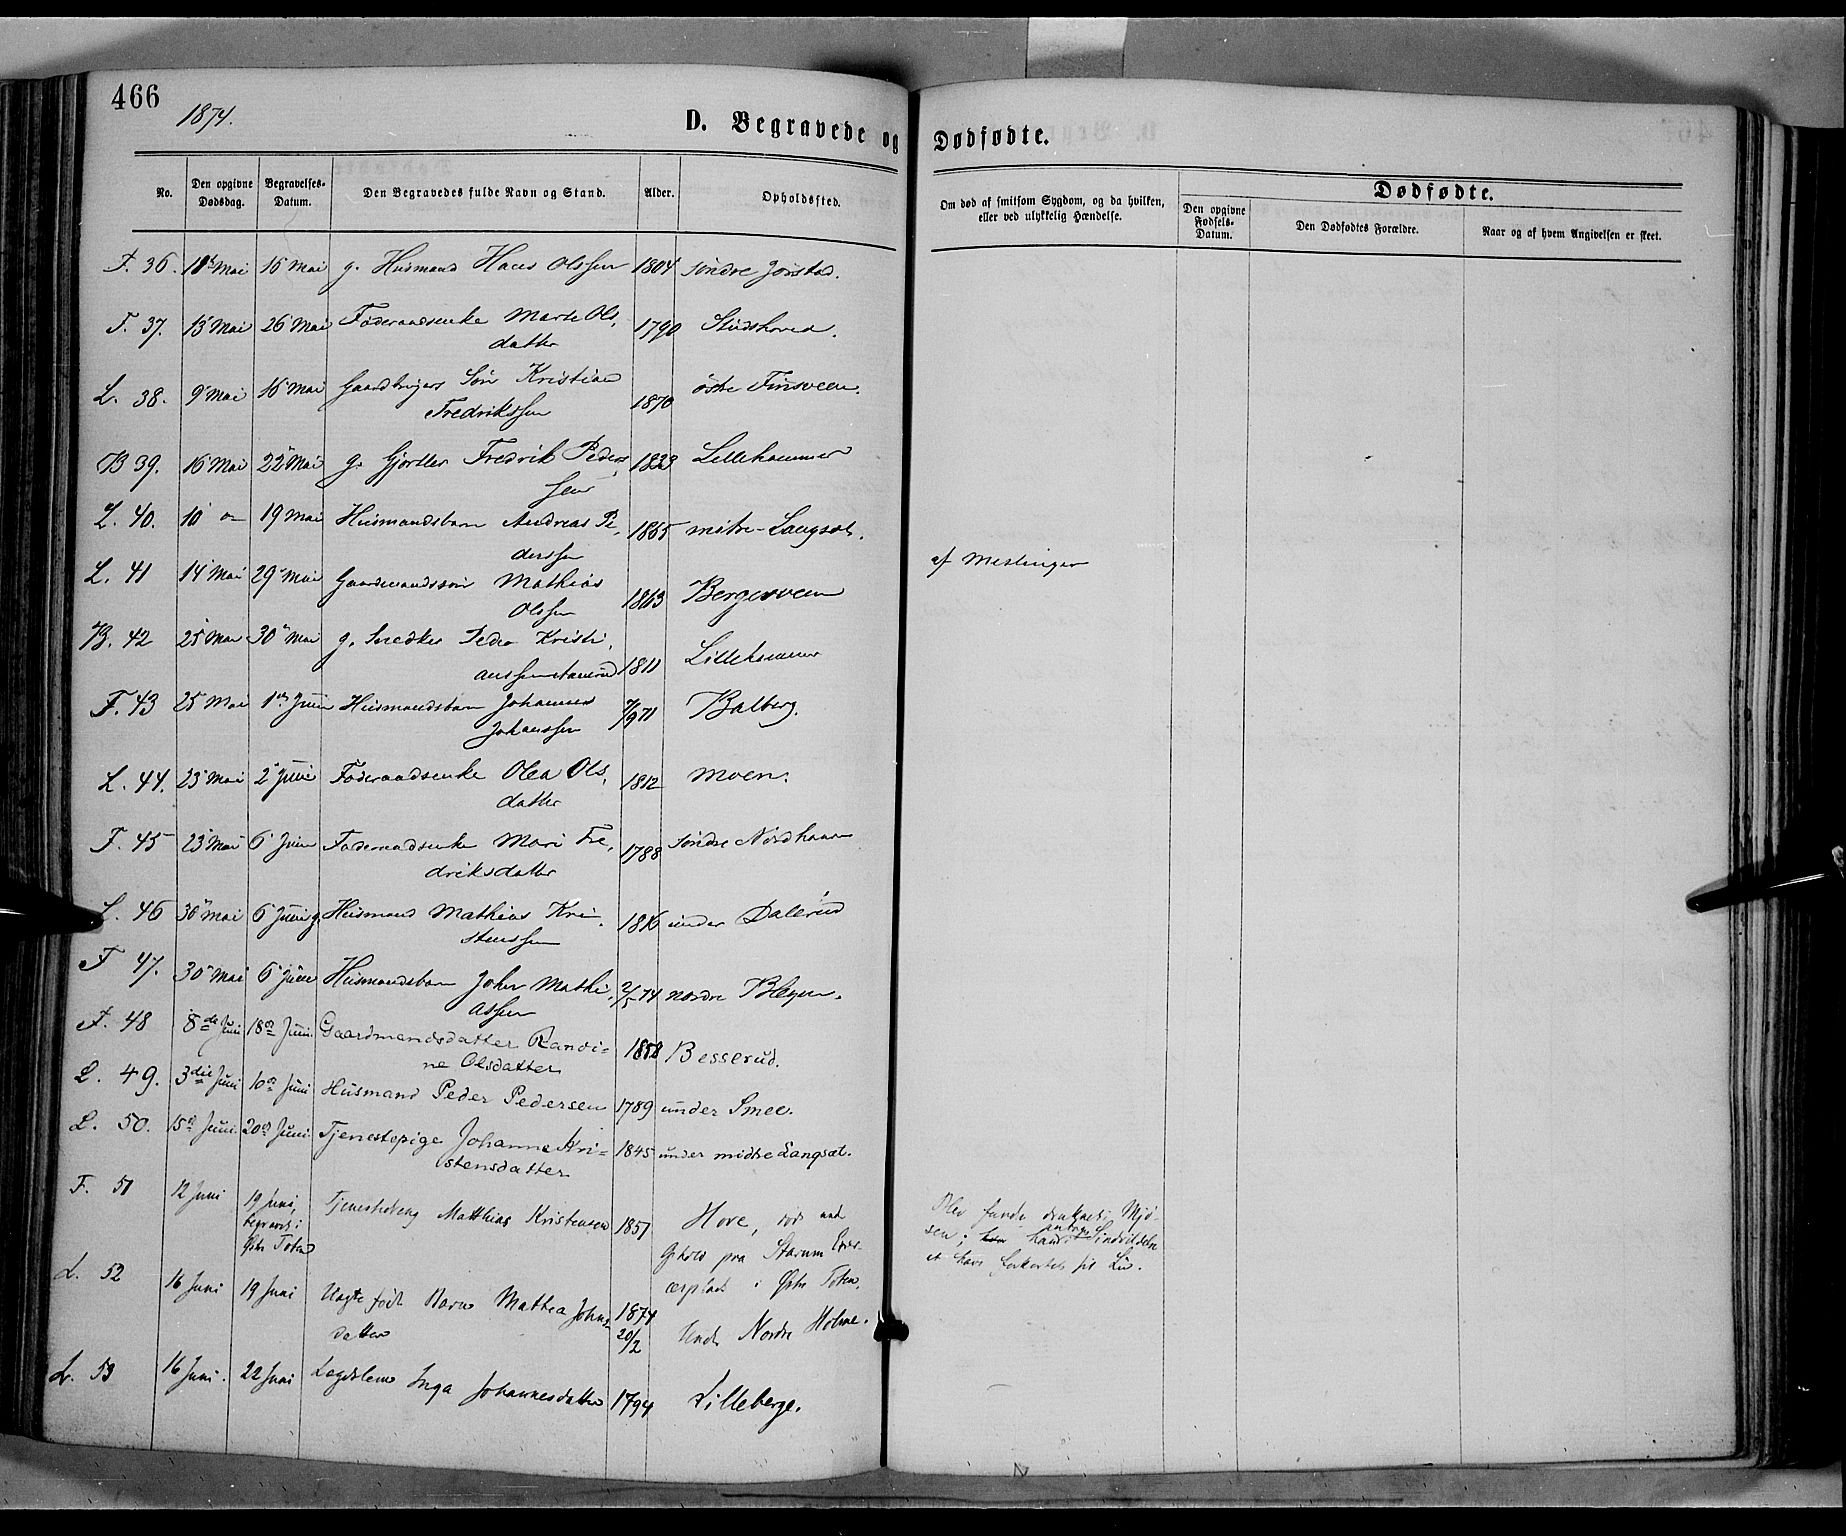 466
1874.
D. Begravede og Dødfødte.
No. Den opgivne Dødsdag. Begravelses-Datum. Den Begravedes fulde Navn og Stand. Alder. Opholdssted. Om død af smitsom Sygdom, og da hvilken, eller ved ulykkelig Hændelse. Dødfødte.
Den opgivne Fødsels-Datum. Den Dødfødtes Forældre. Naar og af hvem Angivelsen er skeet.
F. 36. Mai 16 Mai g. Husmand Hans Olssen 1804 søndre Jørstad.
F. 37. 13 Mai 26 Mai Føderaadsenke Marte Ols,
datter 1790 Studshoved.
L. 38. 9 Mai 16 Mai Gaardbrugers Søn Kristian
Fredrikssen 1870 østre Finsveen.
B 39. 16 Mai 22 Mai g. Gjørtler Fredrik Peders
sen 1823 Lillehammer
L. 40. 10 19 Mai Husmandsbarn Andreas Pe,
derssen 1865 mitre-Langsæt.
L. 41 14 Mai 29 Mai Gaardmandssøn Mathias
Olssen 1863 Bergesveen af Meslinger
B. 42 25 Mai 30 Mai g. Snedker Peder Kristi,
anssen 1811 Lillehammer
F. 43 25 Mai 1ste Juni Husmandsbarn Johannes
Johanssen 7/9 71 Balberg.
L. 44. 23 Mai 2 Juni Føderaadsenke Olea Ols,
datter 1812 Moen.
F. 45 23 Mai 6 Juni Føderaadsenke Mari Fre,
driksdatter 1788 søndre Nordhaave
L. 46 30 Mai 6 Juni g. Husmand Mathias Kri,
stenssen 1816 under Dalerud
F 47. 30 Mai 6 Juni Husmandsbarn Johan Mathi,
assen 2/5 74 nordre Bleyen.
F. 48 8de Juni 18de Juni. Gaardmandsdatter Randi=
ne Olsdatter 1858 Besserud.
L. 49. 3die Juni 10de Juni Husmand Peder Pedersen 1789 under Smee.
L. 50. 15de Juni 20de Juni Tjenestepige Johanne Kri=
stensdatter 1845 under midtre Langsæt.
F. 51 12 Juni 19 Juni,
begravet i
Østre Toten Tjenestedreng Matthias Kristensen 1857 Hove, død ved
Ophold paa Starum Exer-
cerplads i Østre Toten. Blev funden druknet i Mjø-
sen; han antoges i Sindsvildelse
at have forkortet sit Liv.
L. 52 16 Juni 19 Juni Uægte født Barn Mathea Johns
datter 1874
20/2 Under Nordre Holme.
L. 53 16 Juni. 22 Juni Lægdslem Inga Johannesdatter 1794 Lilleberge.